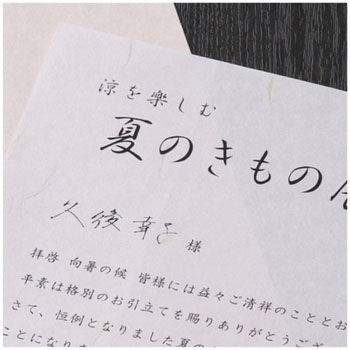 涼を楽しむ
夏のきもの
久後幸子 様
拝啓 向暑の候 皆様には益々ご清祥のこととお
平素は格別のお引立てを賜りありがとうござ
さて、恒例となりました夏の
ことになりま